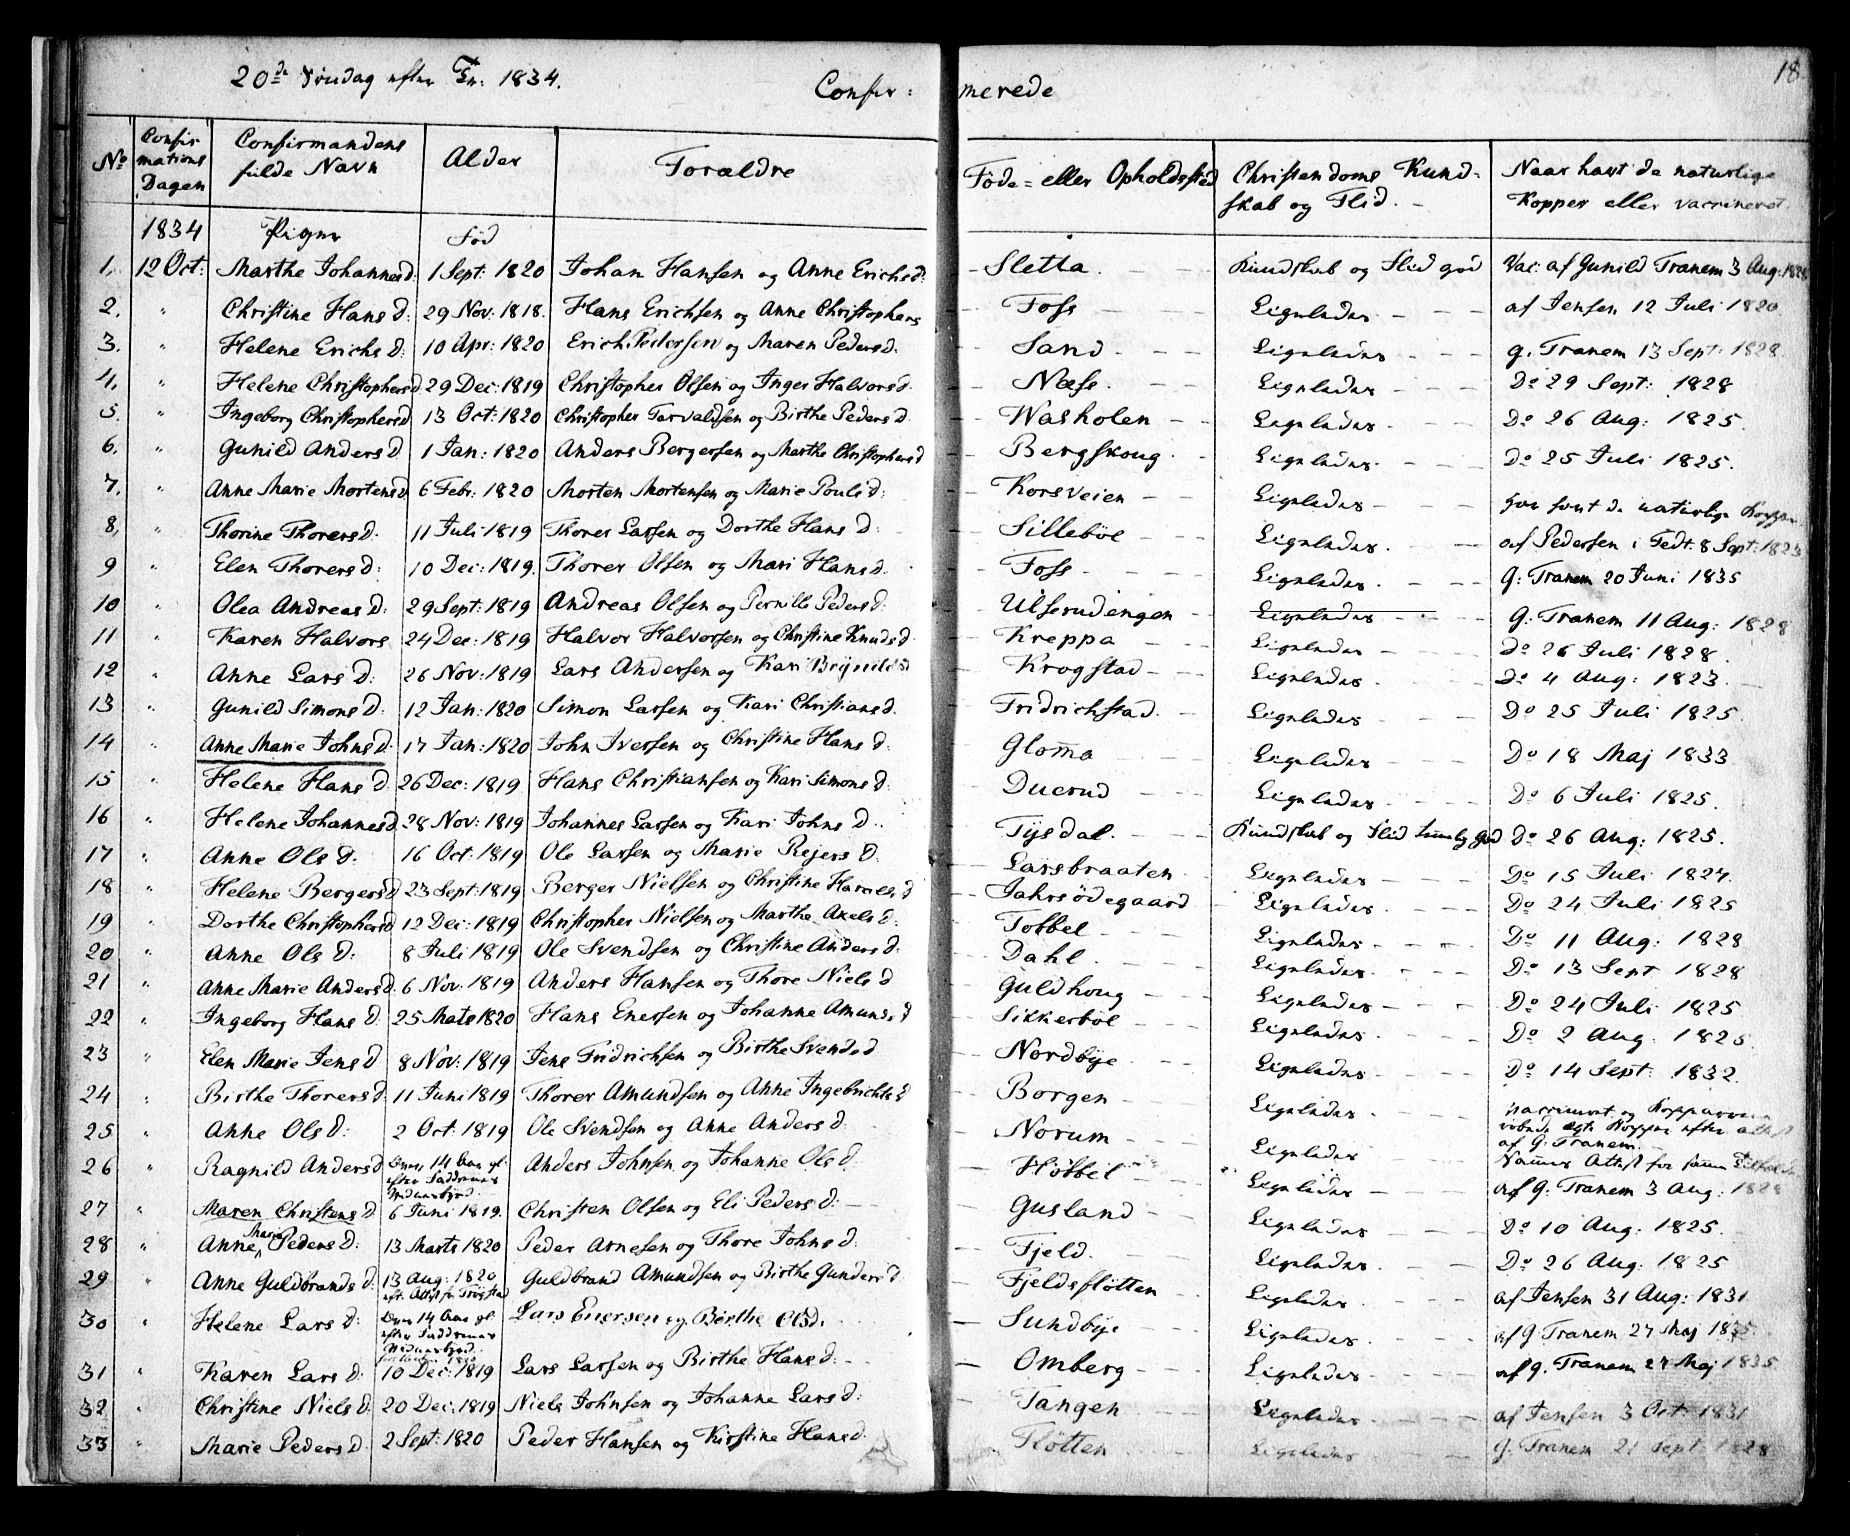 20de Søndag efter Tr: 1834.
Confir: merede
18.
No | Confirmations Dagen | Confirmandens fulde Navn | Alder | Foræld​re | Føde= eller Opholdssted | Christendoms Kundskab og Flid. | Naar havt de naturlige Kopper eller vaccineret
1834 | Piger | Fød
1. | 12 Oct: | Marthe Johannesd: | 1 Sept: 1820 | Johan Hansen og Anne Erichsd: | Sletta | Kundskab og Flid god | Vac: af Gunild Tranem 3 Aug: 1828
2. | " | Christine Hansd: | 29 Nov: 1818. | Hans Erichsen og Anne Christophers | Foss | Ligeledes | af Jensen 12 Juli 1820
3. | " | Helene Erichsd: | 10 Apr: 1820 | Erich Pedersen og Maren Pedersd. | Sand | Ligeledes | g. Tranem 13 Sept: 1828
4. | " | Helene Christophersd | 29 Dec: 1819 | Christopher Olsen og Inger Halvorsd. | Næss. | Ligeledes | Do 29 Sept: 1828
5. | " | Ingeborg Christophersd | 13 Oct: 1820 | Christopher Torvaldsen og Birthe Pedersd. | Washolen | Ligeledes | Do 26 Aug: 1825.
6. | " | Gunild Andersd | 1 Jan: 1820 | Anders Bergersen og Marthe Christophersd | Bergskoug | Ligeledes | Do 25 Juli 1825.
7. | " | Anne Marie Mortensd | 6 Febr: 1820 | Morten Mortensen og Marie Poulsd: | Korsveien | Ligeledes | har havt de naturlige Kopper
8. | " | Thorine Thorersd. | 11 Juli 1819 | Thorer Larsen og Dorthe Hansd: | Sillebøl | Ligeledes. | af Pedersen i Fedt. 8 Sept: 1823
9 | " | Elen Thorersd: | 10 Dec: 1819. | Thorer Olsen og Mari Hansd. | Foss | Ligeledes. | G: Tranem 20 Juni 1835
10 | " | Olea Andreasd: | 29 Sept: 1819 | Andreas Olsen og Pernille Pedersd: | Ulserudengen | Ligeledes | G: Tranem 11 Aug: 1828
11 | " | Karen Halvors | 24 Dec: 1819 | Halvor Halvorsen og Christine Knudsd. | Kreppa | Ligeledes | Do 26 Juli 1828.
12 | " | Anne Larsd: | 26 Nov: 1819 | Lars Andersen og Kari Brynildsd | Krogstad | Ligeledes | Do 4 Aug: 1823.
13 | " | Gunild Simonsd: | 12 Jan: 1820 | Simon Larsen og Kari Christiansd. | Fridrichstad. | Ligeledes | Do 25 Juli 1825.
14 | " | Anne Marie Johnsd. | 17 Jan: 1820 | John Iversen og Christine Hansd: | Glom̅a | Ligeledes | Do 18 Maj 1833
15 | " | Helene Hansd: | 26 Dec: 1819 | Hans Christiansen og Kari Simonsd: | Duerud | Ligeledes | Do 6 Juli 1825.
16 | " | Helene Johannesd | 28 Nov: 1819 | Johannes Larsen og Kari Johnsd: | Tysdal. | Kundskab og Flid temelig god | Do 26 Aug: 1825.
17 | " | Anne Olsd: | 16 Oct: 1819 | Ole Larsen og Marie Rejersd: | Larsbraaten | Ligeledes | Do 15 Juli 1824.
18 | " | Helene Bergersd | 23 Sept: 1819 | Berger Nielsen og Christine Haraldsd | Jahrsödegaard | Ligeledes. | Do 24 Juli 1825
19 | " | Dorthe Christophersd | 12 Dec: 1819 | Christopher Nielsen og Marthe Axelsd: | Tobbel | Ligeledes | Do 11 Aug: 1828
20 | " | Anne Olsd: | 8 Juli 1819 | Ole Svendsen og Christine Andersd: | Dahl | Ligeledes. | Do 13 Sept 1828
21 | " | Anne Marie Andersd. | 6 Nov: 1819 | Anders Hansen og Thore Nielsd | Guldhoug | Ligeledes | Do 24 Juli 1825
22 | " | Ingeborg Hansd: | 25 Mats 1820 | Hans Enersen og Johanne Amundsd | Sikkerbøl | Ligeledes. | Do 2 Aug: 1825.
23 | " | Elen Marie Jensd: | 8 Nov: 1819 | Jens Fridrichsen og Birthe Svendsd | Nordbye | Ligeledes | Do 14 Sept: 1832.
24 | " | Birthe Thorersd: | 11 Juni 1819 | Thorer Amundsen og Anne Ingebrichtsd | Borgen | Ligeledes | vaccineret og
25 | " | Anne Olsd: | 2 Oct: 1819 | Ole Svendsen og Anne Andersd: | Norum | Ligeledes | af G: Tranem
26 | " | Ragnild Andersd | Over 14 Aar gl. efter Faddernes Vidnesbyrd. | Anders Johnsen og Johanne Olsd: | Høbbel | Ligeledes | af G: Tranem 3 Aug: 1828
27 | " | Maren Christensd: | 6 Juni 1819. | Christen Olsen og Eli Pedersd: | Gusland | Ligeledes | Do 10 Aug: 1825.
28 | " | Anne Marie Pedersd: | 13 Marts 1820 | Peder Arnesen og Thore Johnsd: | Fjeld. | Ligeledes | Do 26 Aug: 1825
29 | " | Anne Guldbrandsd: | 13 Aug: 1820 eft. Attest fra Trøgstad | Guldbrand Amundsen og Birthe Gundersd | Fjeldsfløtten | Ligeledes | af Jensen 31 Aug: 1831
30 | " | Helene Larsd: | Over 14 Aar gl. efter Faddernes Vidnesbyrd. | Lars Enersen og Børthe Olsd. | Sundbye | Ligeledes. | af G: Tranem 27 Maj 1835
31 | " | Karen Larsd: | 10 Dec: 1819 | Lars Larsen og Birthe Hansd: | Omberg | Ligeledes | af G. Tranem 27 Maj 1835
32 | " | Christine Nielsd: | 20 Dec: 1819 | Niels Johnsen og Johanne Larsd: | Tangen | Ligeledes | af Jensen 3 Oct: 1831
33 | " | Marie Pedersd. | 2 Sept: 1820 | Peder Hansen og Kirstine Hansd: | Fløtten | Ligeledes | G. Tranem 21 Sept 1828